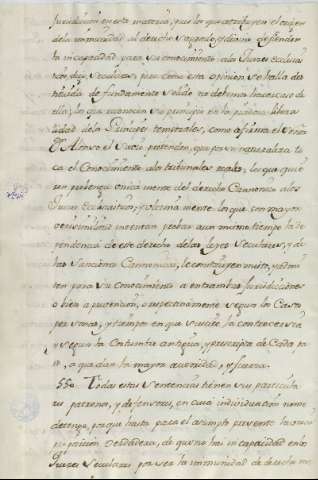 Jurisdiccion en esta materia, pues los que atribuyen el origen
de la inmunidad al derecho sagrado, y divino defienden
la incapacidad para su conocimiento a los Jueces
Seculares, pero como esta opinion se halla des
de fundamento solido no debemos hacer caso de
ella; los que reconocen su principio en la piadosa libera
lidad de los Principes temporales, como afirma el Señor
Dn Alonso el Savio pretenden, que por su naturaleza to
ca el Conocimiento a los tribunales reales, los que quie
ren provenga unicamente del derecho Canonico a los
Jueces Ecclesiasticos, y ultimamente los que con mayor
verosimilitud intentan probar a un mismo tiempo la de
pendencia de este derecho de las Leyes Seculares, y de
las Sanciones Canonicas, le constituyen mixto, y admi
ten para su Conocimiento a entrambas Jurisdicciones
o bien a prevencion, o respectivamente segun los Casos
personas, y tiempos en que suscite la controversia,
y segun la Costumbre antigua, y prescripta de Cada pa
, a que dan la mayor autoridad, y fuerza.
550. Todas estas Sentencias tienen sus particula
res patronos, y defensores, en cuia individuacion no me
detengo, porque basta para el asumpto presente la
posicion de que no hai incapacidad en los
Jueces Seculares por ser la inmunidad de derecho